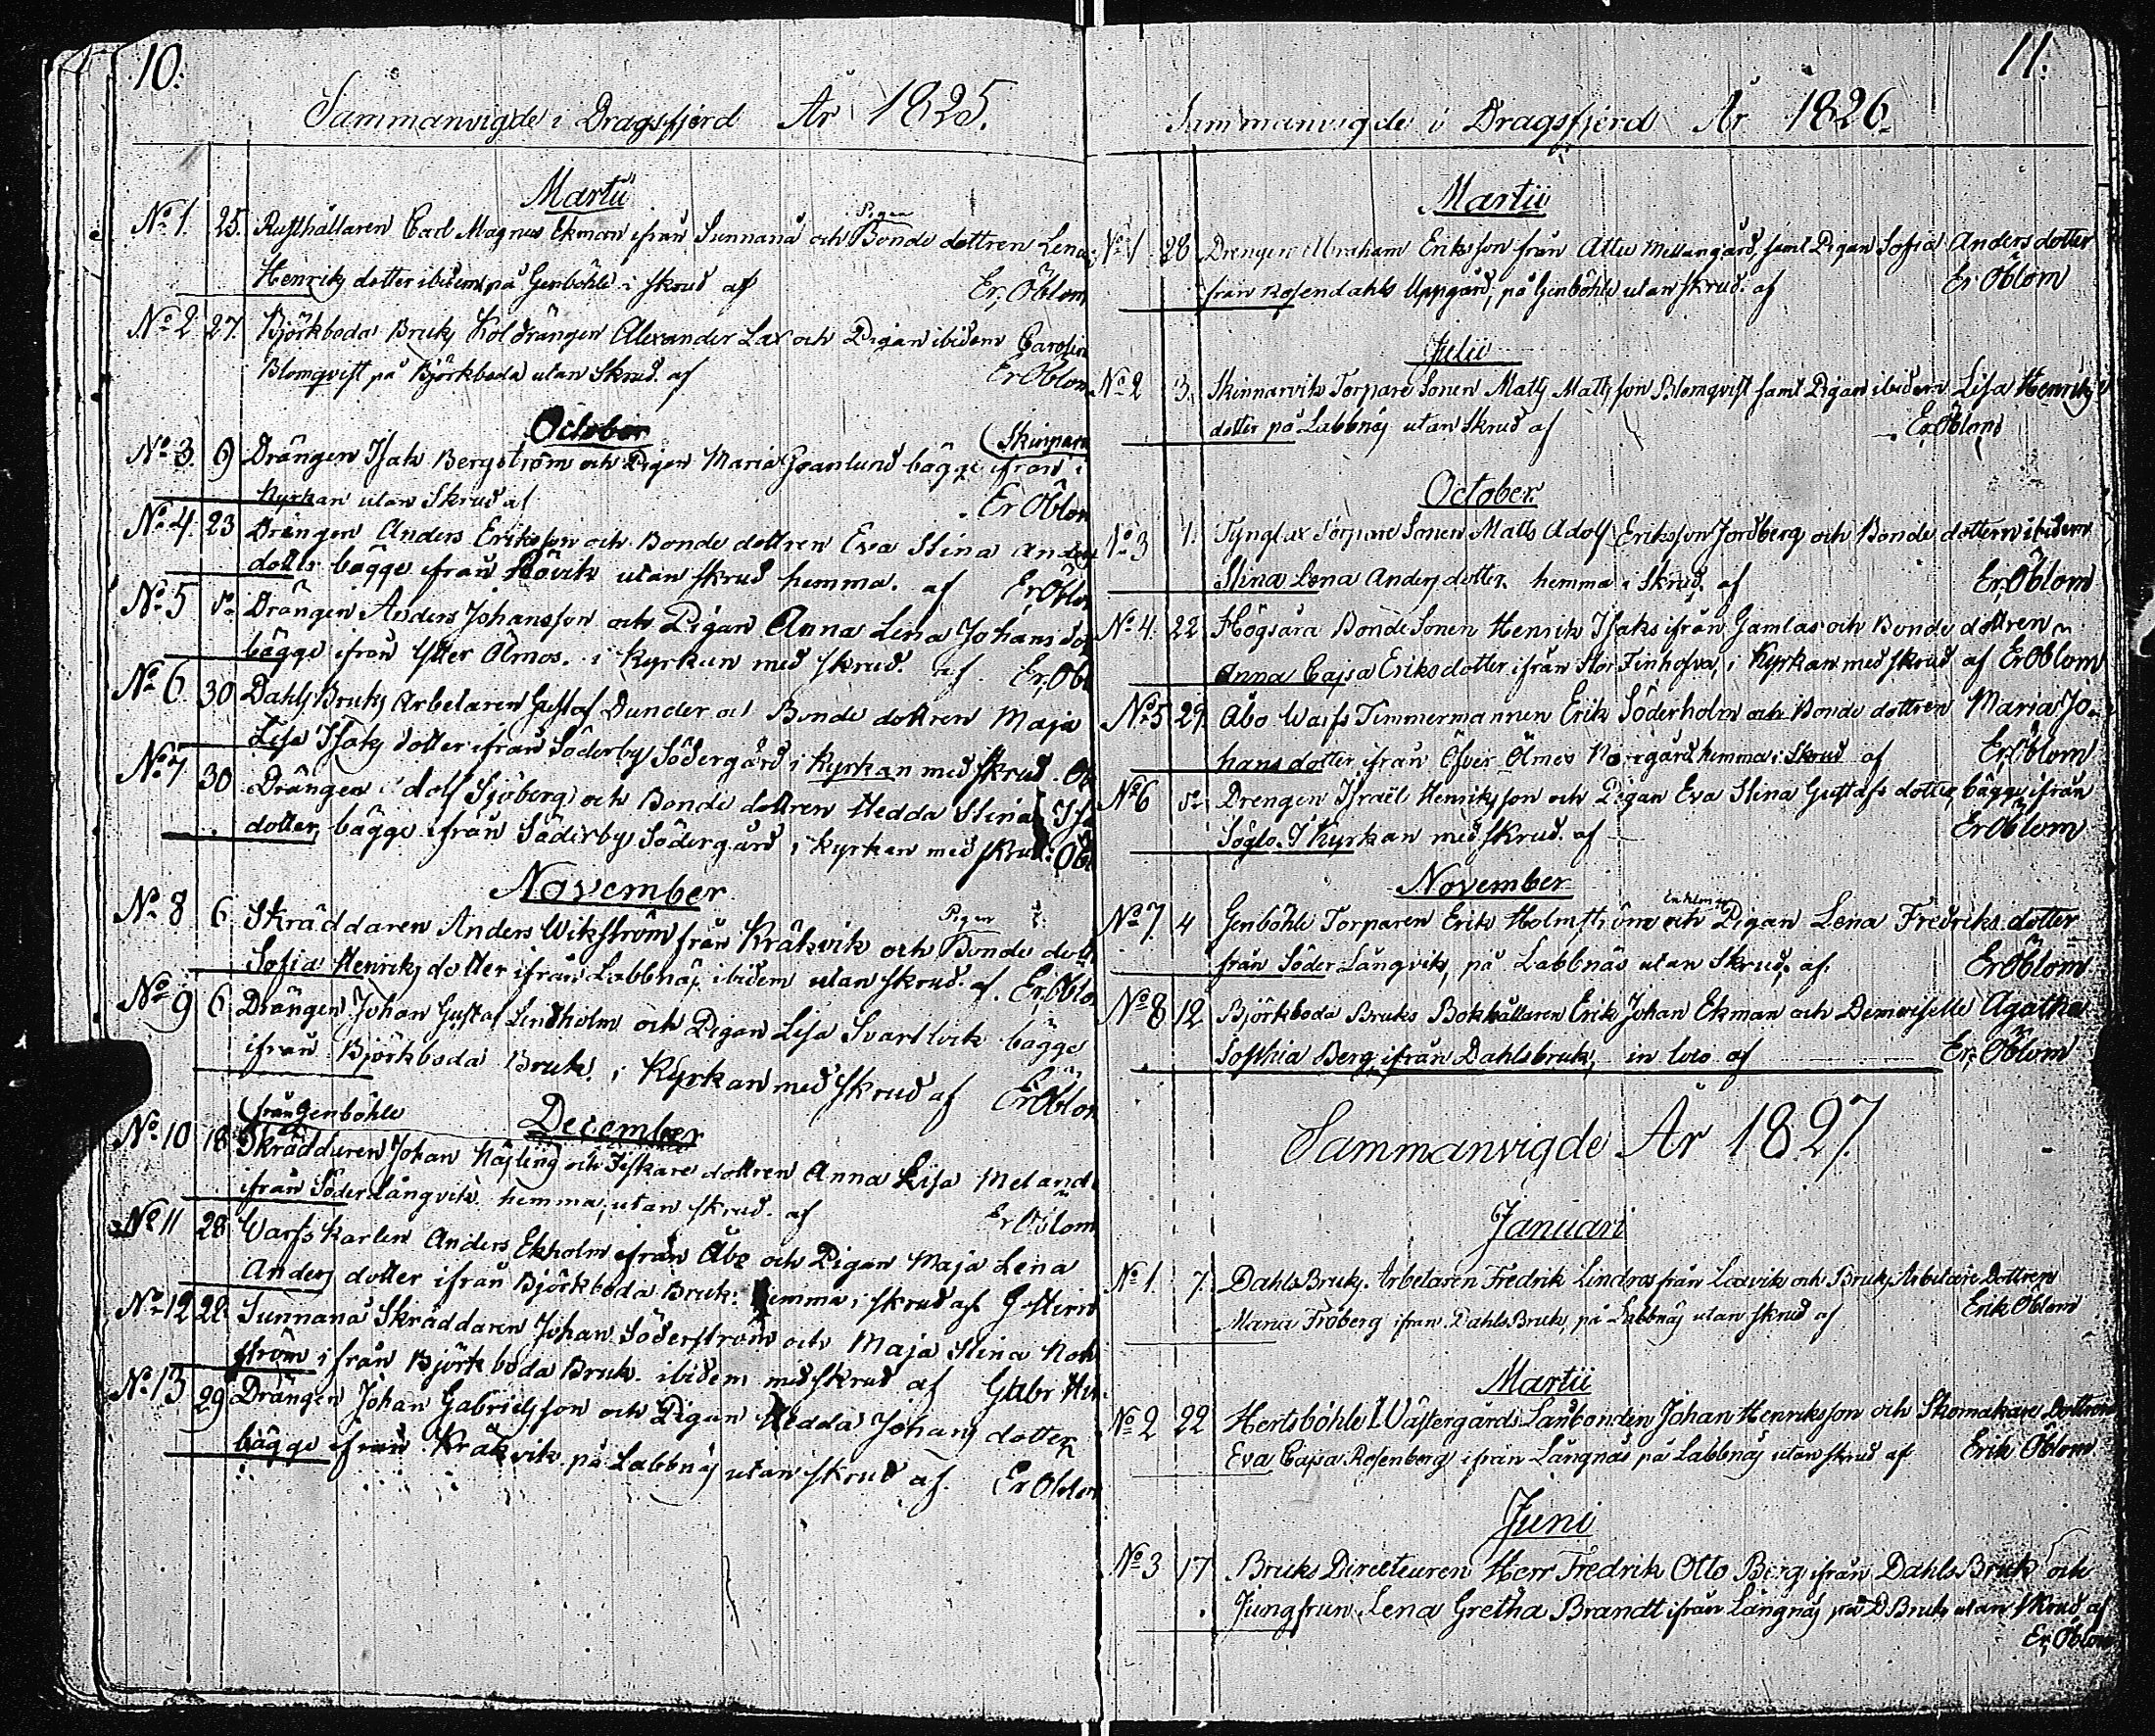 10.
Sammanvigde i Dragsfjerd År 1825.
Martii
Pigan
No 1. 25. Rusthållaren Carl Magnus Ekman ifrån Sunnanå och Bonde dottren Lena
Henriks dotter ibidem på Genböhle i skrud af Er. Öblom
No 2 27. Björkboda Bruks Koldrängen Alexander Lax och Pigan ibidem Carolin
Blomqvist på Björkboda utan Skrud. af Er Öblom
October
No 3. 9 Drängen Isak Bergström och Pigan Maria Granlund bägge ifrån i
Kyrkan utan Skrud af Er Öblom
No 4. 23 Drängen Anders Eriksson och Bonde dottren Eva Stina Anders
dotter bägge ifrån Rövik utan skrud hemma. af Er Öblom
No 5 do Drängen Anders Johansson och Pigan Anna Lena Johans dot
bägge ifrån Ytter Ölmos. i Kyrkan med skrud. af Er. Öbl
No 6. 30 Dahls Bruks Arbetaren Gustaf Dunder och Bonde dottren Maja
Lisa Isaks dotter ifrån Söderby Södergård i Kyrkan med skrud. Öb
No 7 30 Drängen Adolf Sjöberg och Bonde dottren Hedda Stina Isa
dotter, bägge ifrån Söderby Södergård i Kyrkan med skrud: Öbl
November
Pigan
No 8 6 Skräddaren Anders Wikström från Kråkvik och Bonde dott
Sofia Henriks dotter ifrån Labbnäs ibidem utan skrud. af. Er. Öblo
No 9 6 Drängen Johan Gustaf Lindholm och Pigan Lisa Svartlock bägge
ifrån Björkboda Bruk. i Kyrkan med skrud af Er Öblom
från Genböhle
December
No 10 18 Skräddaren Johan Häsling och Fiskare dottren Anna Lisa Meland
ifrån Söderlångvik hemma, utan skrud. af Er Öblom
No 11 28 Warfs Karlen Anders Ekholm ifrån Åbo och Pigan Maja Lena
Anders dotter ifrån Björkboda Bruk: hemma i skrud af
No 12 28 Sunnanå Skräddaren Johan Söderström och Maja Stina
ström ifrån Björkboda Bruk. ibidem med skrud af Gabr
No 13 29 Drängen Johan Gabrielsson och Pigan Hedda Johans dotter
bägge ifrån Kråkvik på Labbnäs utan skrud af. Er Öblom
11.
Sammanvigde i Dragsfjerd År 1826.
Martii
No 1 28 Drengen Abraham Eriksson från Attu Mellangård, samt Pigan Sofia Anders dotter
från Rosendahls Uppgård, på Genböhle utan skrud. af Er Öblom
Julii
No 2 3. Skinnarvik Torpare Sonen Mats Matsson Blomqvist samt Pigan ibidem Lisa Henriks
dotter på Labbnäs utan Skrud af Er Öblom
October
No 3 1. Tynglax Torpare Sonen Matts Adolf Eriksson Jordberg och Bonde dottern ibidem
Stina Lena Anders dotter. hemma i Skrud. af Er. Öblom
No 4. 22 Högsåra Bonde Sonen Henrik Isaks ifrån Gamlas och Bonde dottren
Anna Cajsa Eriks dotter ifrån Stor Finhofva, i Kyrkan med skrud af Er Öblom
No 5 29. Åbo Warfs Timmermannen Erik Söderholm och Bonde dottren Maria Jo-
hans dotter ifrån Öfver Ölmos Norrgård hemma i Skrud af Er. Öblom
No 6 do Drengen Israël Henriksson och Pigan Eva Stina Gustafs dotter, bägge ifrån
Söglo. I Kyrkan med skrud. af Er Öblom
November
Enkl.
No 7. 4 Genböhle Torparen Erik Holmström och Pigan Lena Fredriks dotter
från Söder Långvik, på Labbnäs utan Skrud. af. Er Öblom
No 8 12 Björkboda Bruks Bokhållaren Erik Johan Ekman och Demoiselle Agatha
Sophia Berg, ifrån Dahlsbruk, in loco af Er. Öblom
Sammanvigde År 1827.
Januari
No 1. 7. Dahls Bruks. Arbetaren Fredrik Lindros från Laxvik och Bruks Arbetare Dottren
Maria Fröberg ifrån Dahls Bruk, på Labbnäs utan skrud af Erik Öblom
Martii
No 2 22 Hertsböhle Wästergårds Landbonden Johan Henriksson och Skomakare Dottren
Eva Cajsa Rosenberg ifrån Långnäs på Labbnäs utan skrud af Erik Öblom
Juni
No 3 17 Bruks Directeuren Herr Fredrik Otto Berg ifrån Dahls Bruk och
Jungfrun Lena Gretha Brandt ifrån Långnäs på D Bruk utan skrud af
Er. Öblom